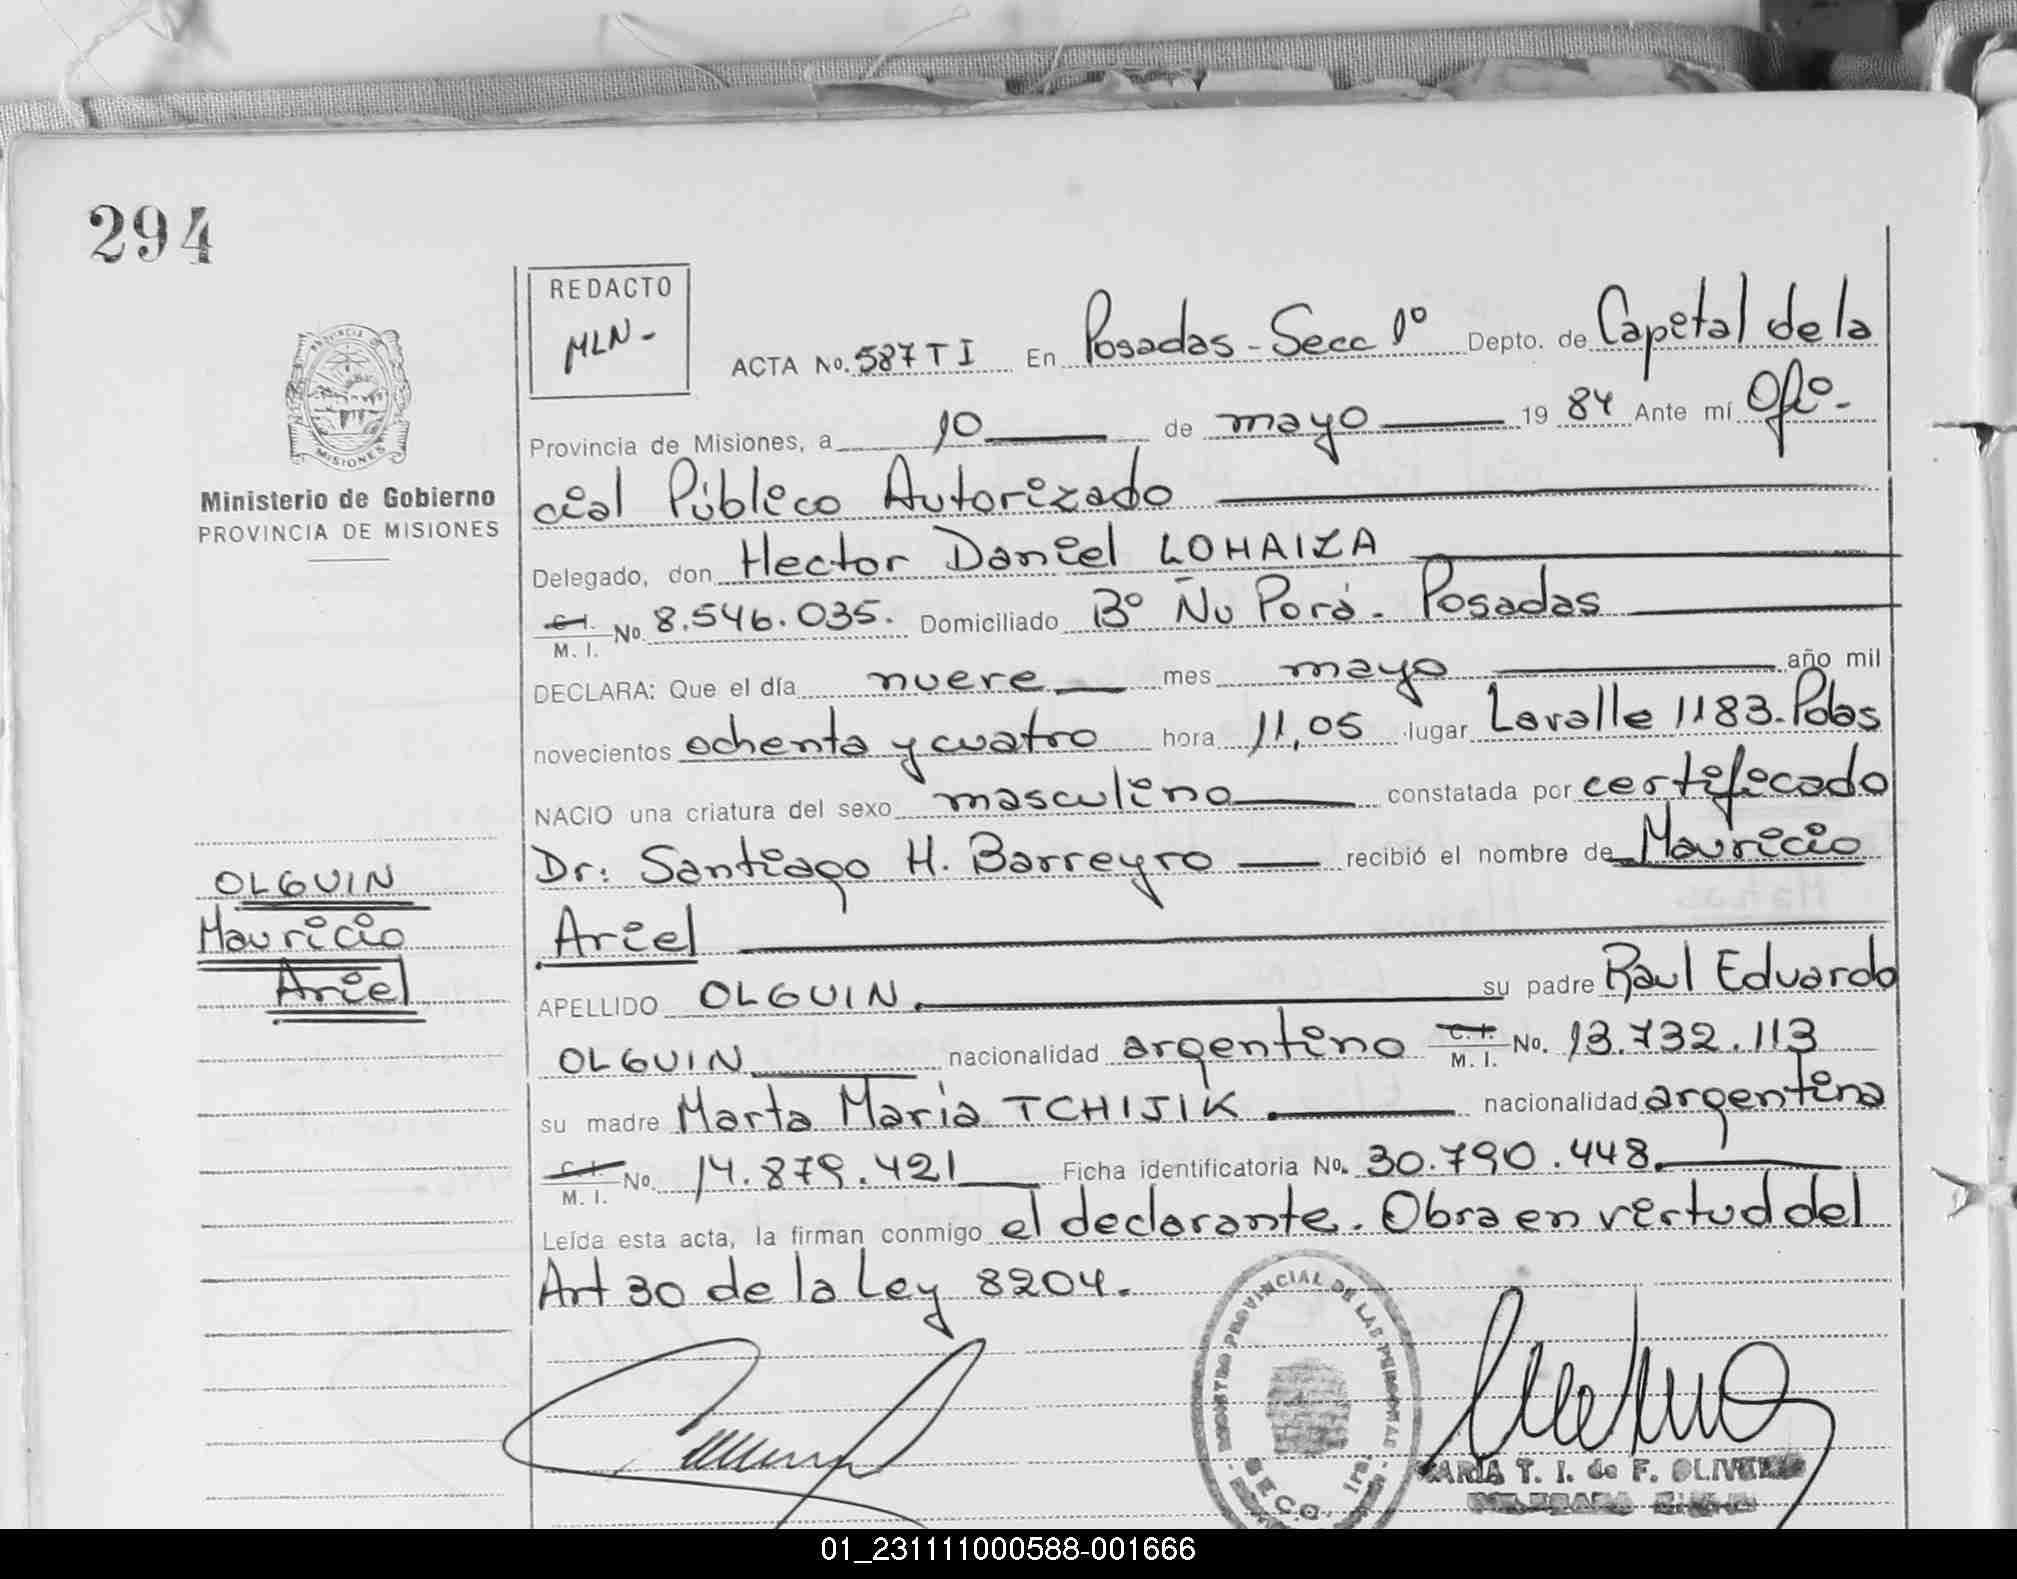 294
REDACTO
MLN-
PROVINCIA DE
MISIONES
Ministerio de Gobierno
PROVINCIA DE MISIONES
ACTA No. 587 T I En Posadas - Secc 1º Depto. de Capital de la
Provincia de Misiones, a 10 de mayo 19 84 Ante mí Ofi-
cial Público Autorizado
Delegado, don Hector Daniel LOHAIZA
C.I. M. I. No. 8.546.035. Domiciliado Bº Ñu Porá. Posadas
DECLARA: Que el día nueve mes mayo año mil
novecientos ochenta y cuatro hora 11,05 lugar Lavalle 1183. Pdas
NACIO una criatura del sexo masculino constatada por certificado
Dr: Santiago H. Barreyro recibió el nombre de Mauricio
Ariel
OLGUIN
Mauricio
Ariel
APELLIDO OLGUIN su padre Raul Eduardo
OLGUIN nacionalidad argentino C.I. M. I. No. 13.732.113
su madre Marta Maria TCHIJIK nacionalidad argentina
C.I. M. I. No. 14.879.421 Ficha identificatoria No. 30.790.448.
Leída esta acta, la firman conmigo el declarante. Obra en virtud del
Art 30 de la Ley 8204.
REGISTRO PROVINCIAL DE LAS PERSONAS
SECC. 1ra.
MARIA T. I. de F. OLIVEIRA
01_231111000588-001666